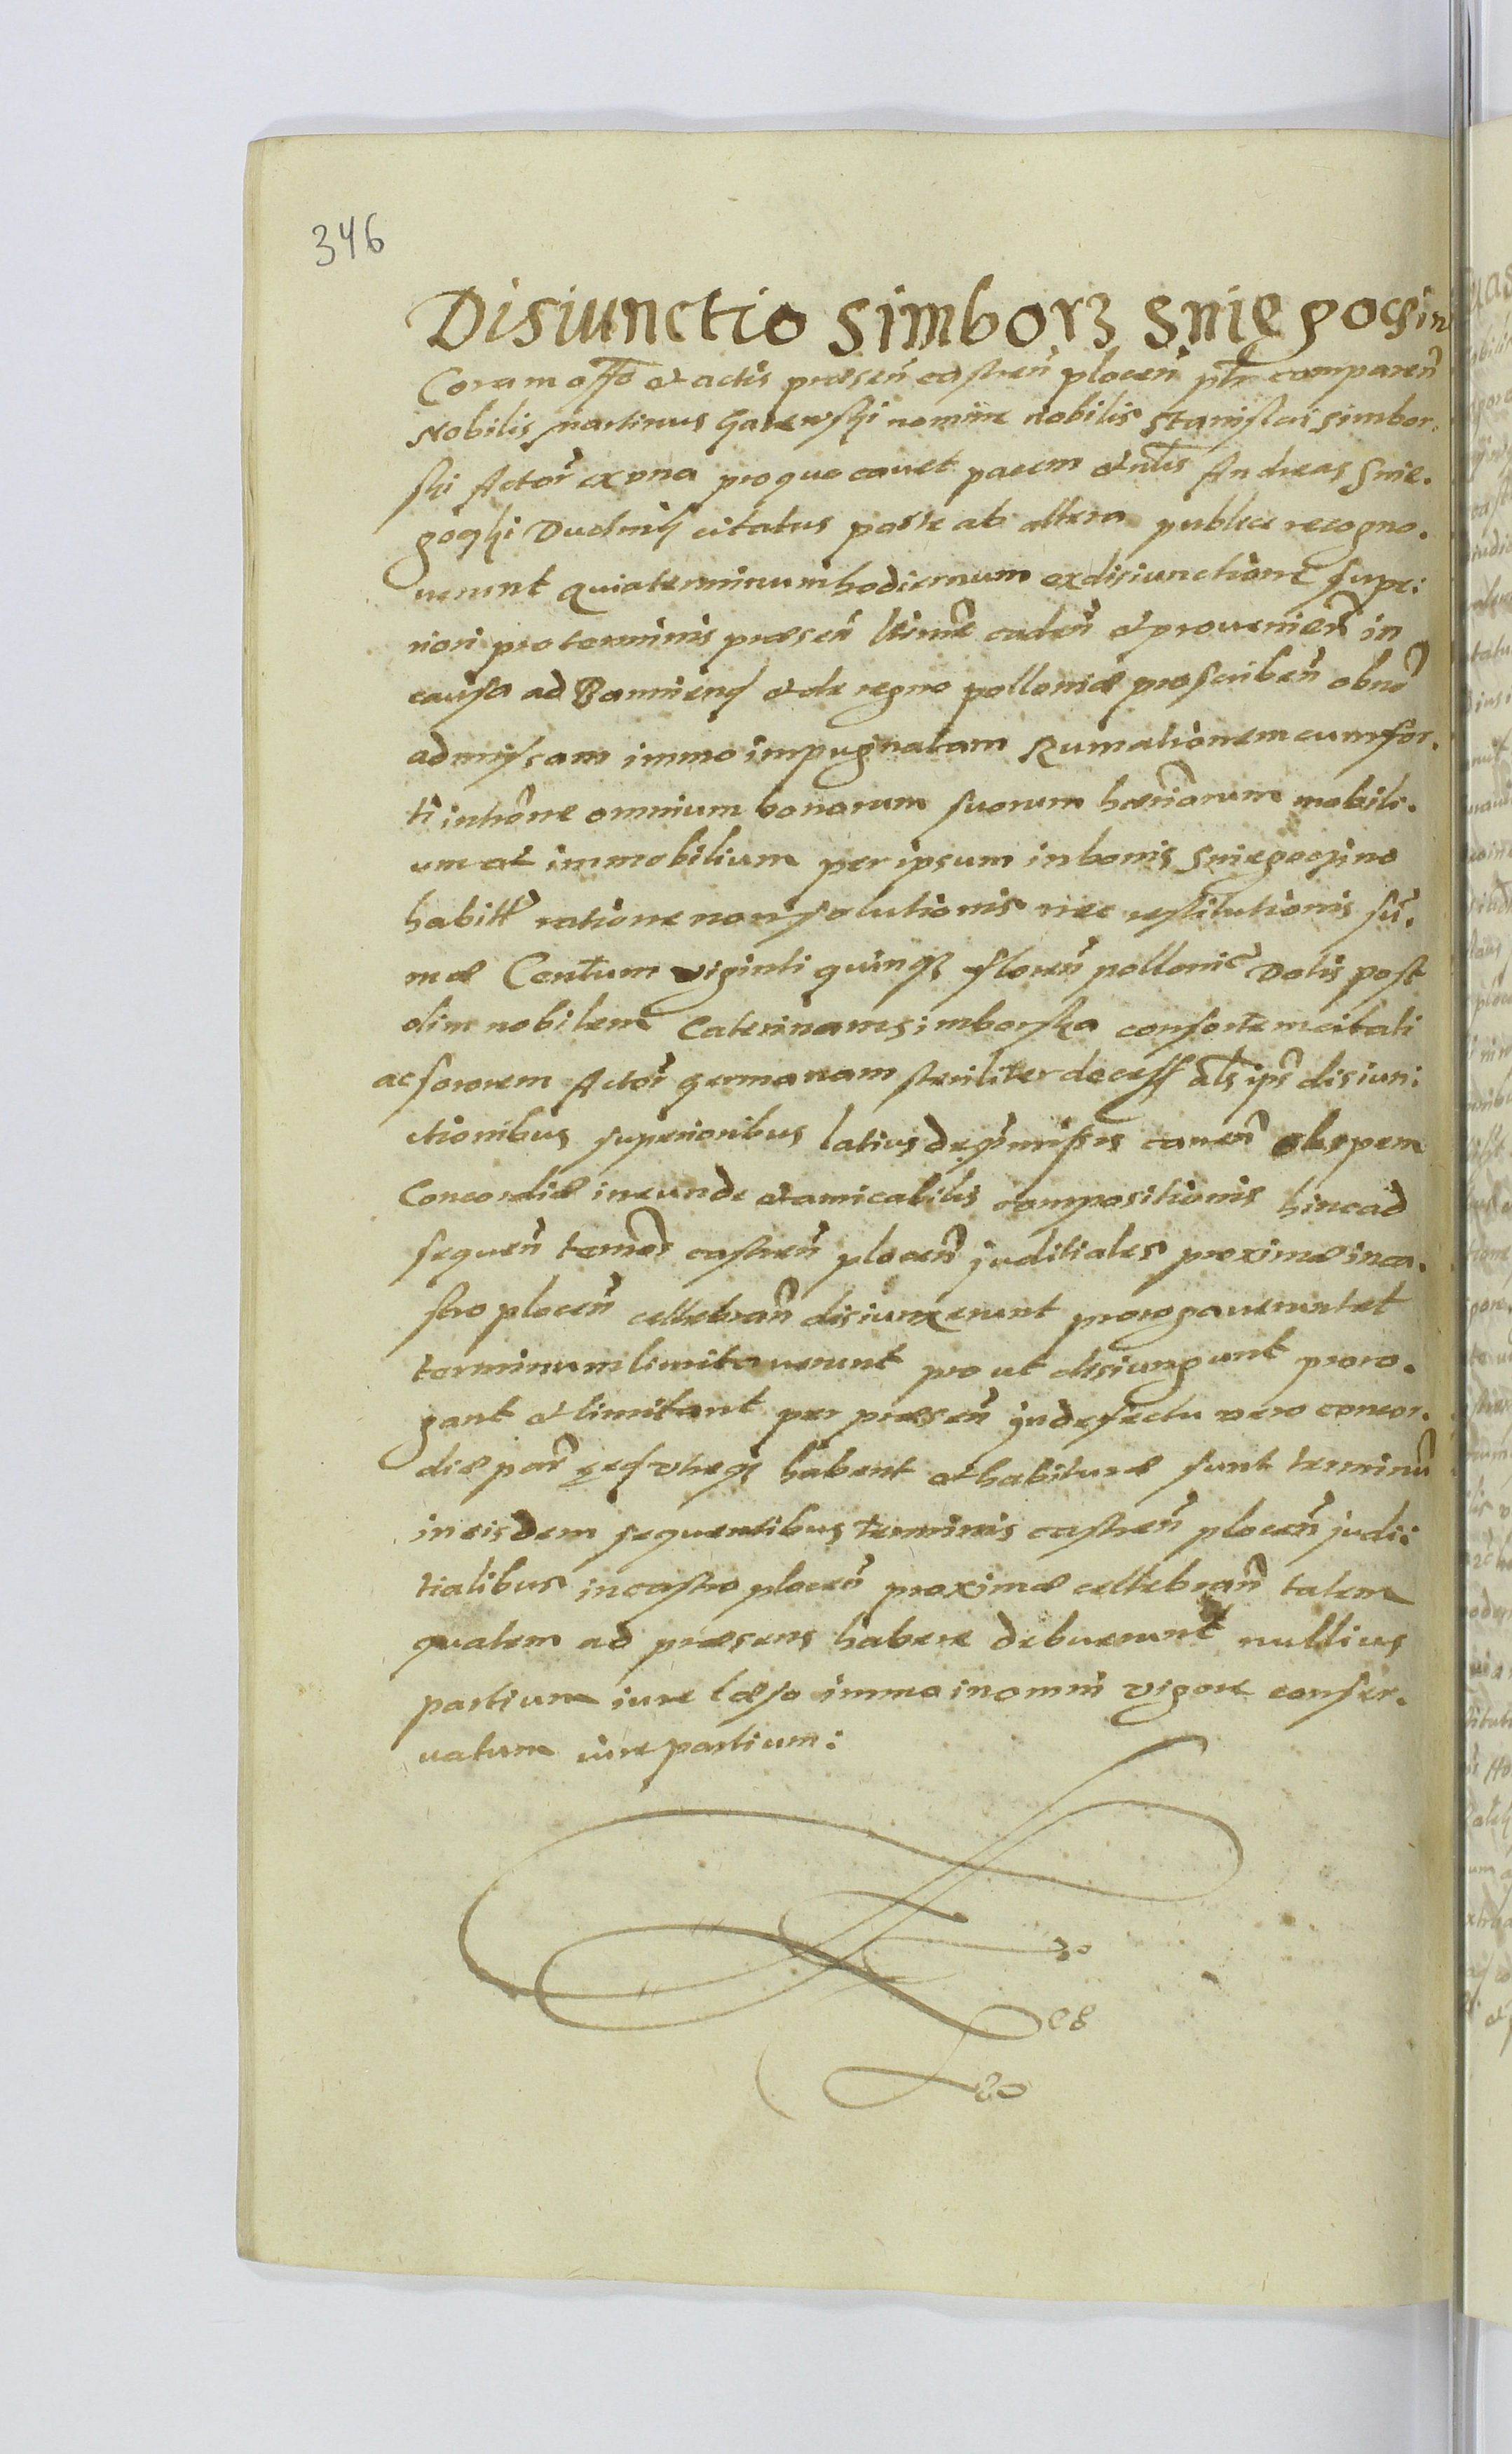 346
Disiunctio Simborz Sniegoczin
Coram offo et actis præsen̄ castren̄ plocen̄ plr comparen̄
Nobilis martinus Garewski nomine nobilis Stanislai Simbor.
ski Actor̄ ex vna pro quo cauet pacem et nlis Andreas Snie.
goczki Duchnik citatus parte ab altera publice recogno.
uerunt Quia terminum hodiernum ex disiunctione supe:
riori pro terminis præsen̄ ltime caden̄ et prouenien̄ in
causa ad Bannien̄ et de regno polloniæ proscriben̄ ob no
admissam immo impugnatam Rumationem cum for.
ti introne omnium bonorum suorum hæriorum mobili.
um et immobilium per ipsum in bonis Sniegoczino
habitt ratione non solutionis nec restitutionis sū.
mæ Centum viginti quinqz floren̄ pollonic Dotis post
olim nobilem Caterinam Simborska consortem citati
ac sororem Actor̄ germanam steriliter decess als ips disiun:
ctionibus superioribus latius de præmissis canen̄ ob spem
Concordiæ ineunde et amicabilis compositionis hinc ad
sequen̄ termos castren̄ plocen̄ juditiales proxime in ca.
stro plocen̄ cellebran̄ disiunxerunt prorogauerunt et
terminum limitauerunt pro ut disiungunt proro.
gant et limitant per præsen̄ jn defectu vero concor.
diæ par vtreqz habent et habituræ sunt terminū
in eisdem sequentibus terminis castren̄ plocen̄ judi:
tialibus in castro plocen̄ proxime cellebran̄ talem
qualem ad præsens habere debuerunt nullius
partium iure læso immo in omni vigore conser.
uatum iure partium: